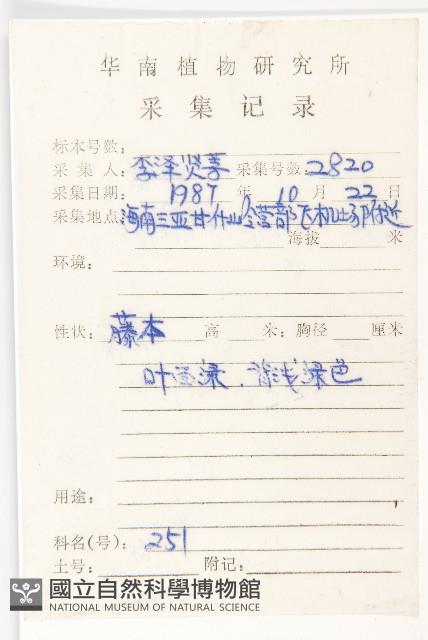 华南植物研究所
采集记录
标本号数:
采集人: 李泽贤等 采集号数: 2820
采集日期: 1987 年 10 月 22 日
采集地点: 海南三亚甘什山 营部飞机场附近
海拔 米
环境:
性状: 藤本 高 米; 胸径 厘米
叶 绿. 背浅绿色
用途:
科名(号): 251
土号: 附记:
國立自然科學博物館
NATIONAL MUSEUM OF NATURAL SCIENCE